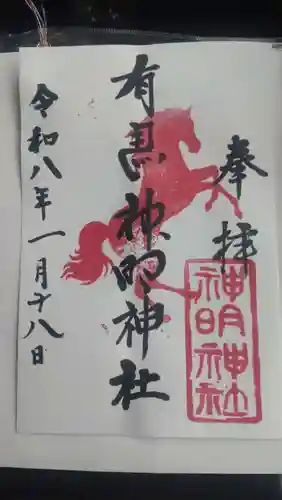 奉拝
有馬神明神社
神明神社
令和八年一月十八日